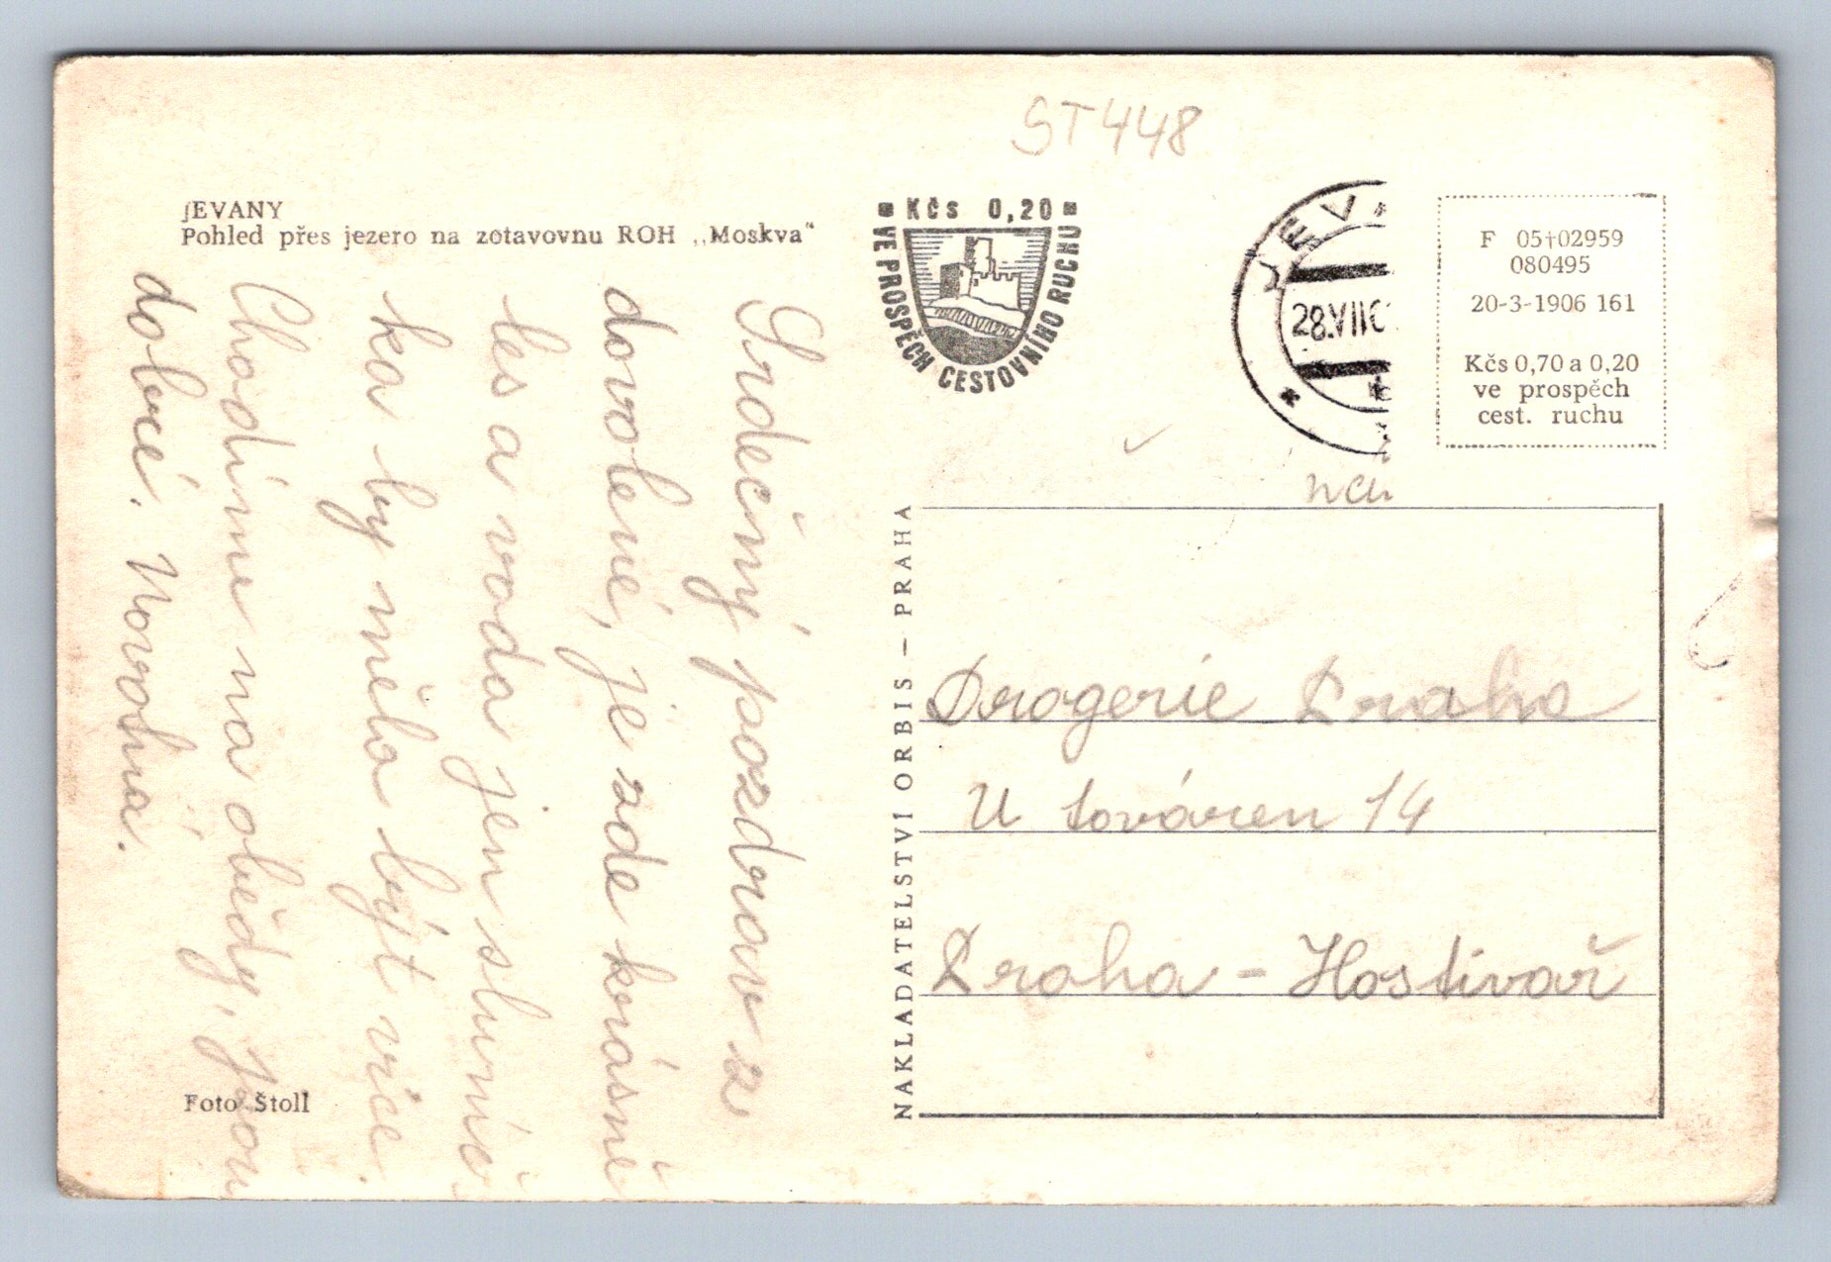 ST448
JEVANY
Pohled přes jezero na zotavovnu ROH „Moskva“
Kčs 0,20
VE PROSPĚCH CESTOVNÍHO RUCHU
JEV
28.VII
F 05†02959
080495
20-3-1906 161
Kčs 0,70 a 0,20
ve prospěch
cest. ruchu
Srdečný pozdrav z
dovolené, je zde krásně
les a voda jen sluníč
ko by mělo být více.
Chodíme na obědy, jsou
dobré.
NAKLADATELSTVÍ ORBIS – PRAHA
Drogerie Praha
U továren 14
Praha - Hostivař
Foto Štoll